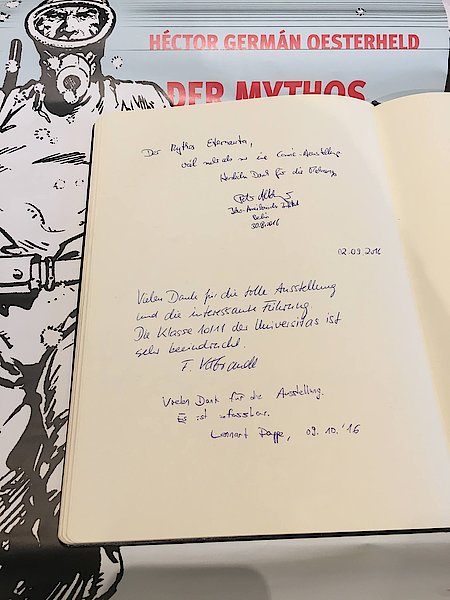 HÉCTOR GERMÁN OESTERHELD
DER MYTHOS
Der Mythos Eternauta,
viel mehr als nur eine Comic-Ausstellung
Herzlichen Dank für die Führung,
Ibero-Amerikanisches Institut
Berlin
30.8.2016
02.09.2016
Vielen Dank für die tolle Ausstellung
und die interessante Führung.
Die Klasse 10/11 der Universitas ist
sehr beeindruckt.
T.
Vielen Dank für die Ausstellung.
Es ist unfassbar.
Lennart Pappe, 09.10.'16